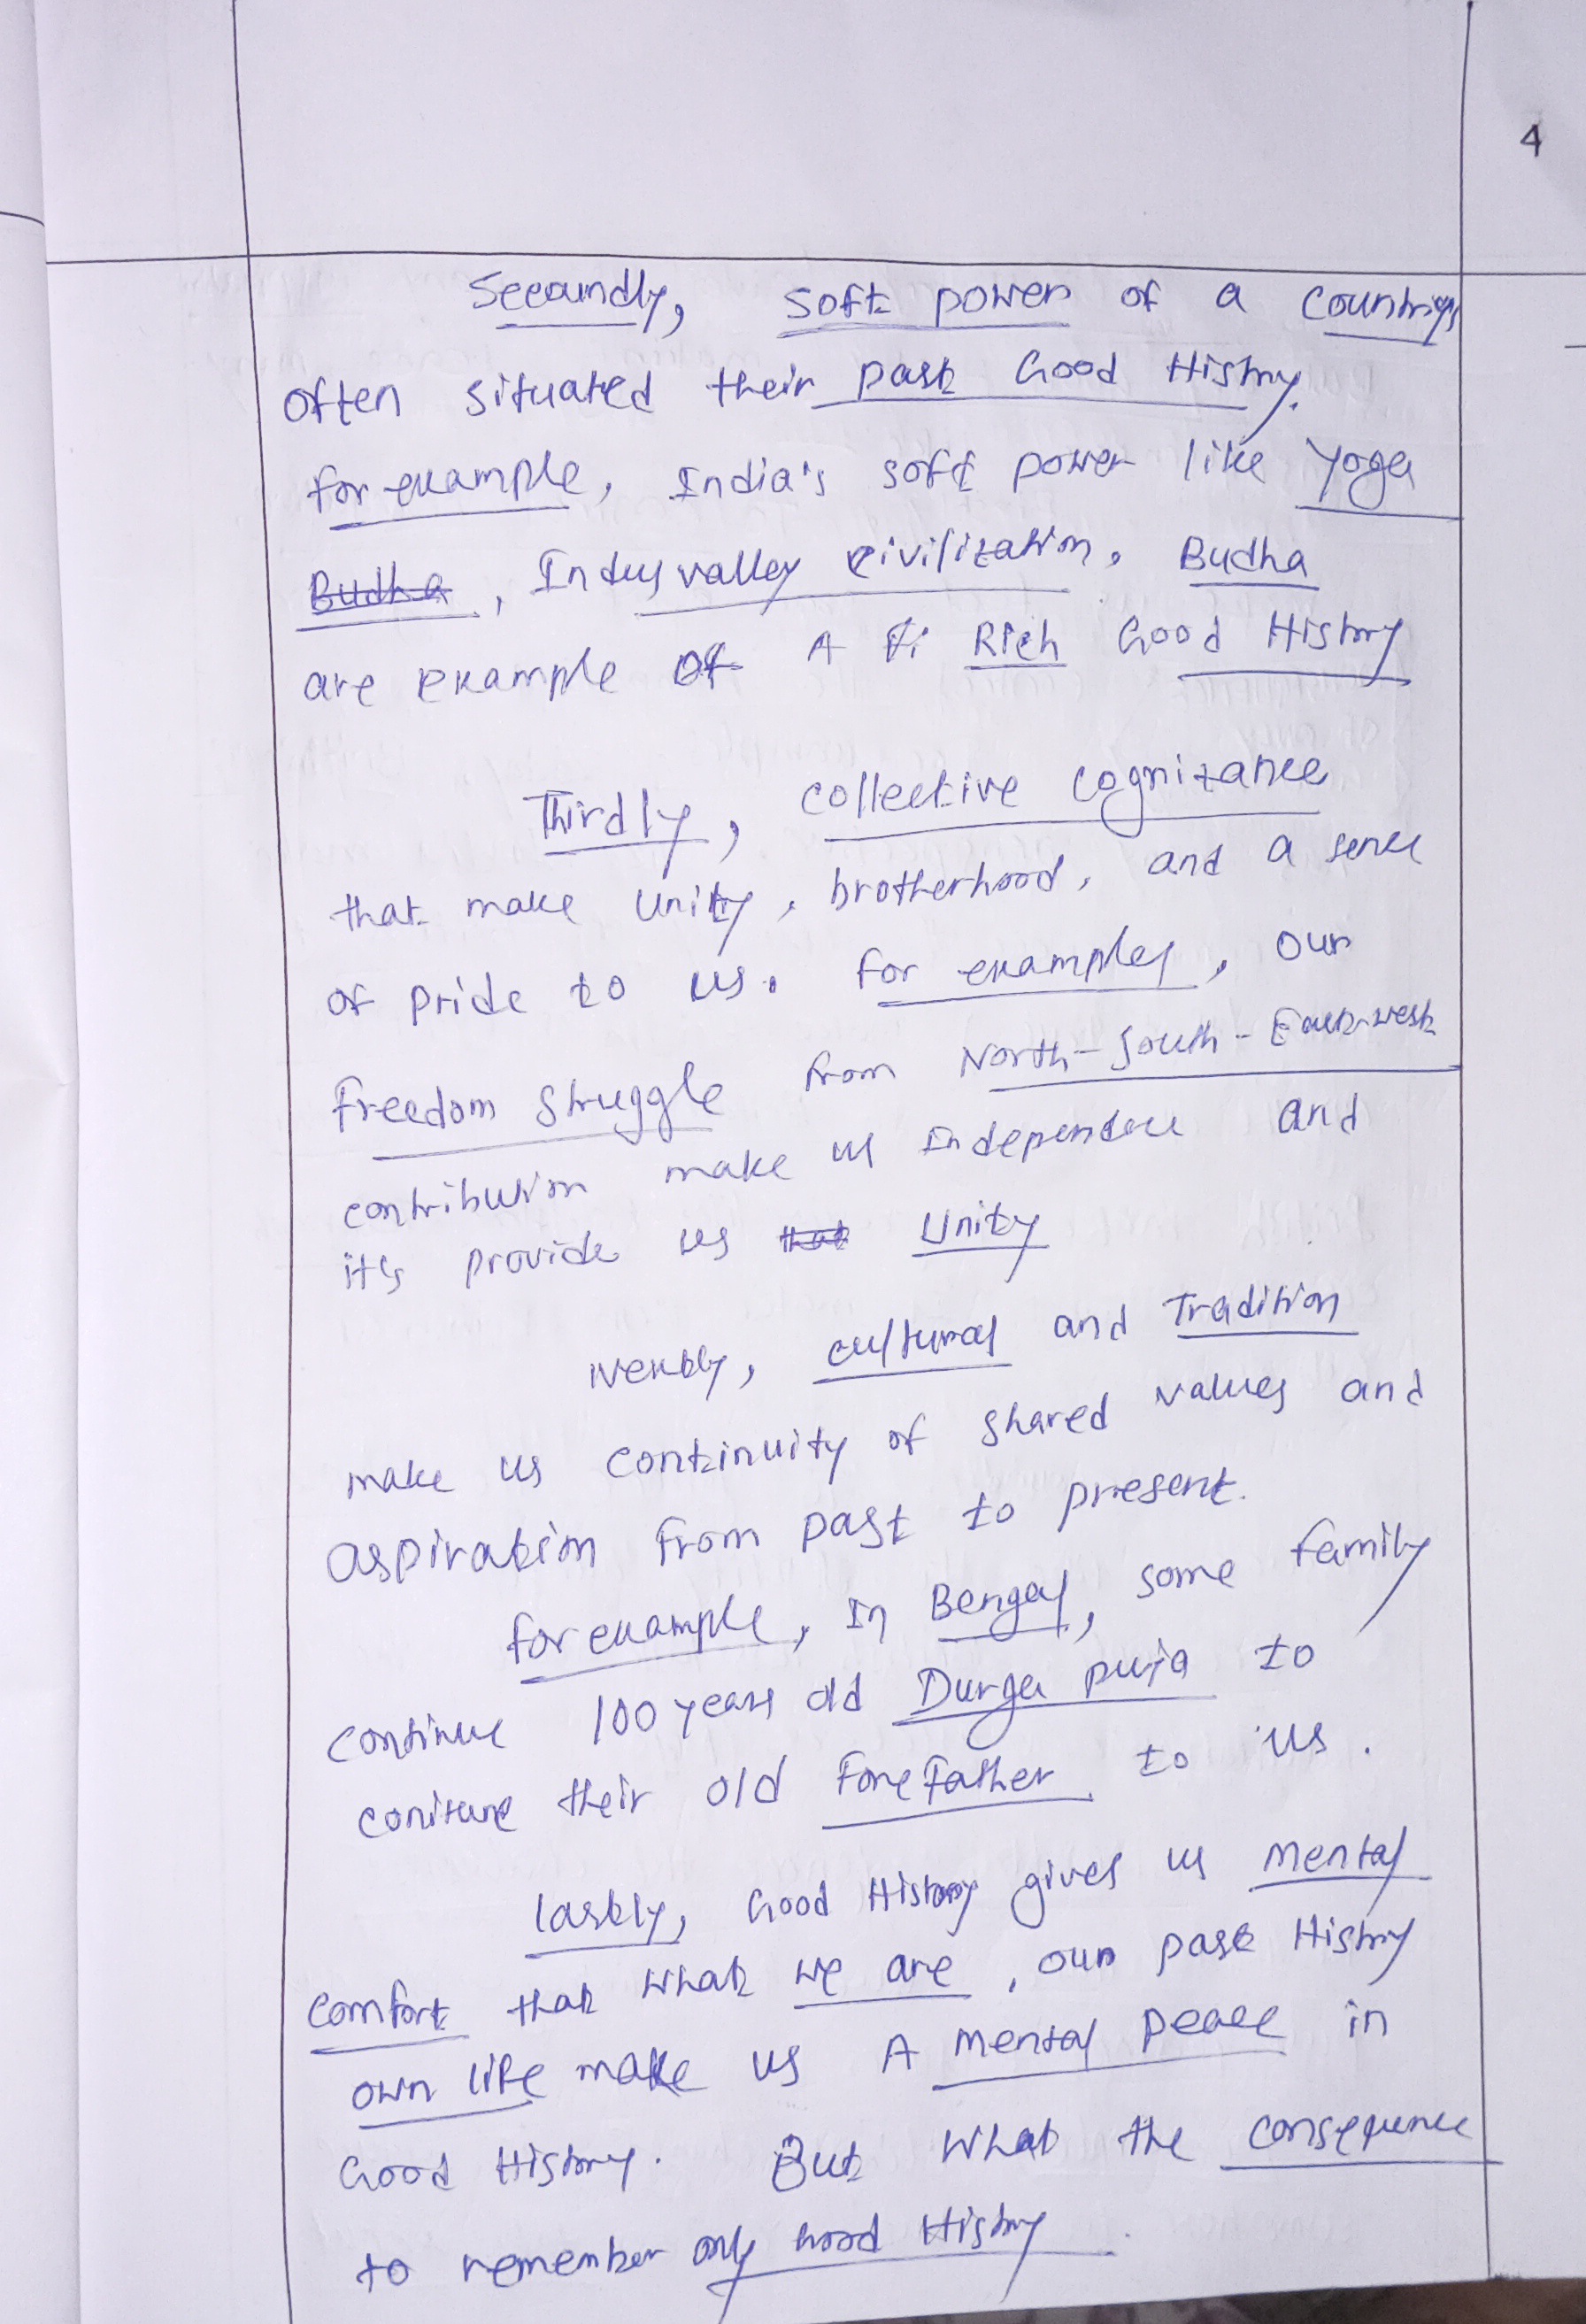 4
Secoundly, soft power of a Countrys
often situated their past Good History.
for example, India's soft power like Yoga
Budha, Indus valley civilization, Budha
are example of A Ri Rich Good History
Thirdly, collective cognizance
that make Unity, brotherhood, and a sense
of pride to us. for examples, our
freedom struggle from North-South-East-west
contribution make us Independence and
it's provide us that Unity
Nextly, cultural and Tradition
make us continuity of shared values and
aspiration from past to present.
for example, In Bengal, some family
continue 100 years old Durga puja to
their old Forefather to us.
lastly, Good History gives us mental
comfort that what we are, our past History
own life make us A mental peace in
Good History. But what the consequence
to remember only Good History.